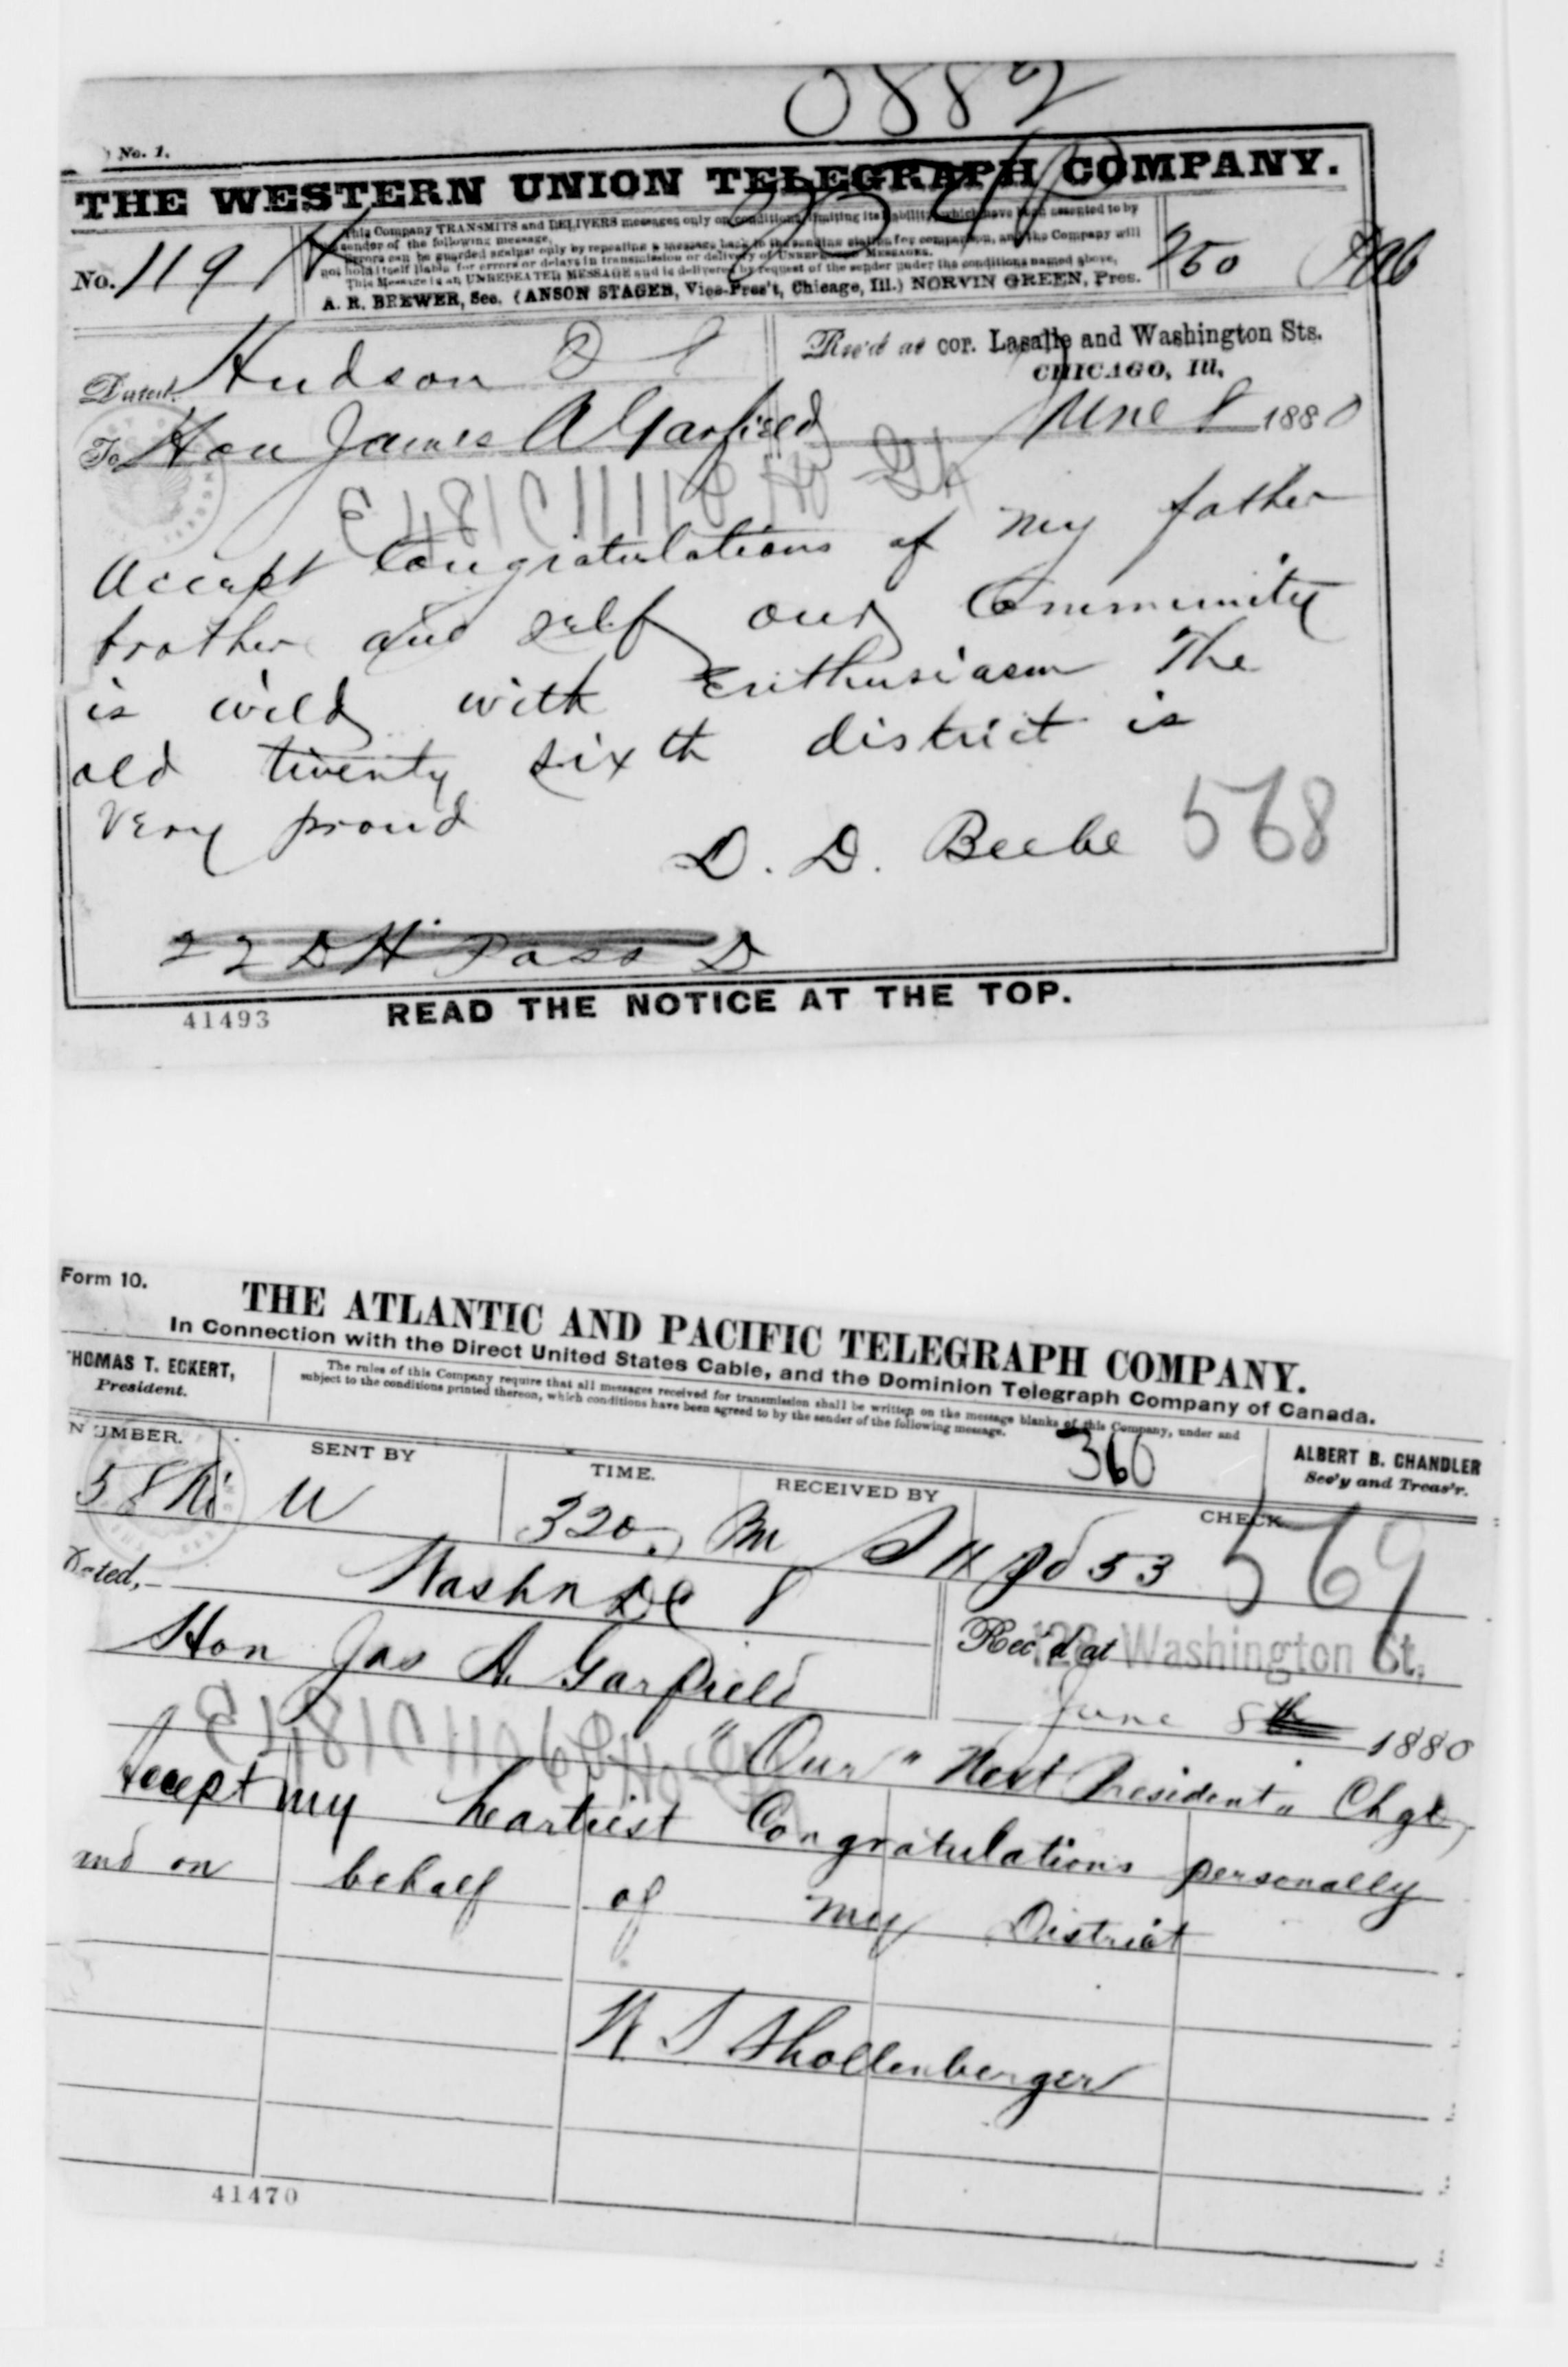 0882
No. 1.
THE WESTERN UNION TELEGRAPH COMPANY.
This Company TRANSMITS and DELIVERS messages only on conditions, limiting its liability, which have been assented to by
sender of the following message.
Errors can be guarded against only by repeating a message back to the sending station for comparison, and the Company will
not hold itself liable for errors or delays in transmission or delivery of UNREPEATED MESSAGES.
This Message is an UNREPEATED MESSAGE and is delivered by request of the sender under the conditions named above.
A. R. BREWER, Sec. (ANSON STAGER, Vice-Pres't, Chicago, Ill.) NORVIN GREEN, Pres.
No. 119
250
Dated. Hudson O 8
Rec'd at cor. Lasalle and Washington Sts.
CHICAGO, Ill,
June 8 1880
To Hon James A Garfield
Accept Congratulations of my father
brother and self our Community
is wild with Enthusiasm The
old twenty sixth district is
very proud
D. D. Beebe 568
22 DH Pass D
READ THE NOTICE AT THE TOP.
41493
Form 10.
THE ATLANTIC AND PACIFIC TELEGRAPH COMPANY.
In Connection with the Direct United States Cable, and the Dominion Telegraph Company of Canada.
THOMAS T. ECKERT,
President.
The rules of this Company require that all messages received for transmission shall be written on the message blanks of this Company, under and
subject to the conditions printed thereon, which conditions have been agreed to by the sender of the following message.
360
ALBERT B. CHANDLER
Sec'y and Treas'r.
NUMBER. SENT BY TIME. RECEIVED BY CHECK
58 320 53 569
Dated, Washn DC 8
Rec'd at 128 Washington St.
Hon Jas A. Garfield
June 8th 1880
"Our" Next President" Chgo,
Accept my heartiest Congratulations personally
and on behalf of my District
W S Shollenberger
41470